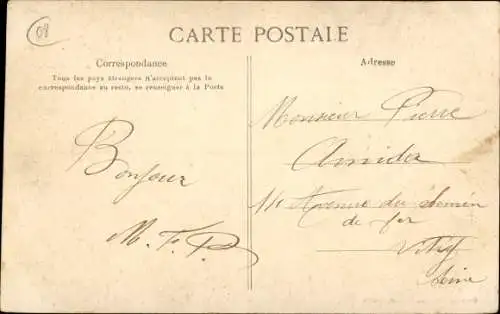 08
CARTE POSTALE
Correspondance
Tous les pays étrangers n'acceptant pas la
correspondance au recto, se renseigner à la Poste
Bonjour
M. F. P.
Adresse
Monsieur Pierre
Amider
Avenue du Chemin
de fer
Vitry
Seine